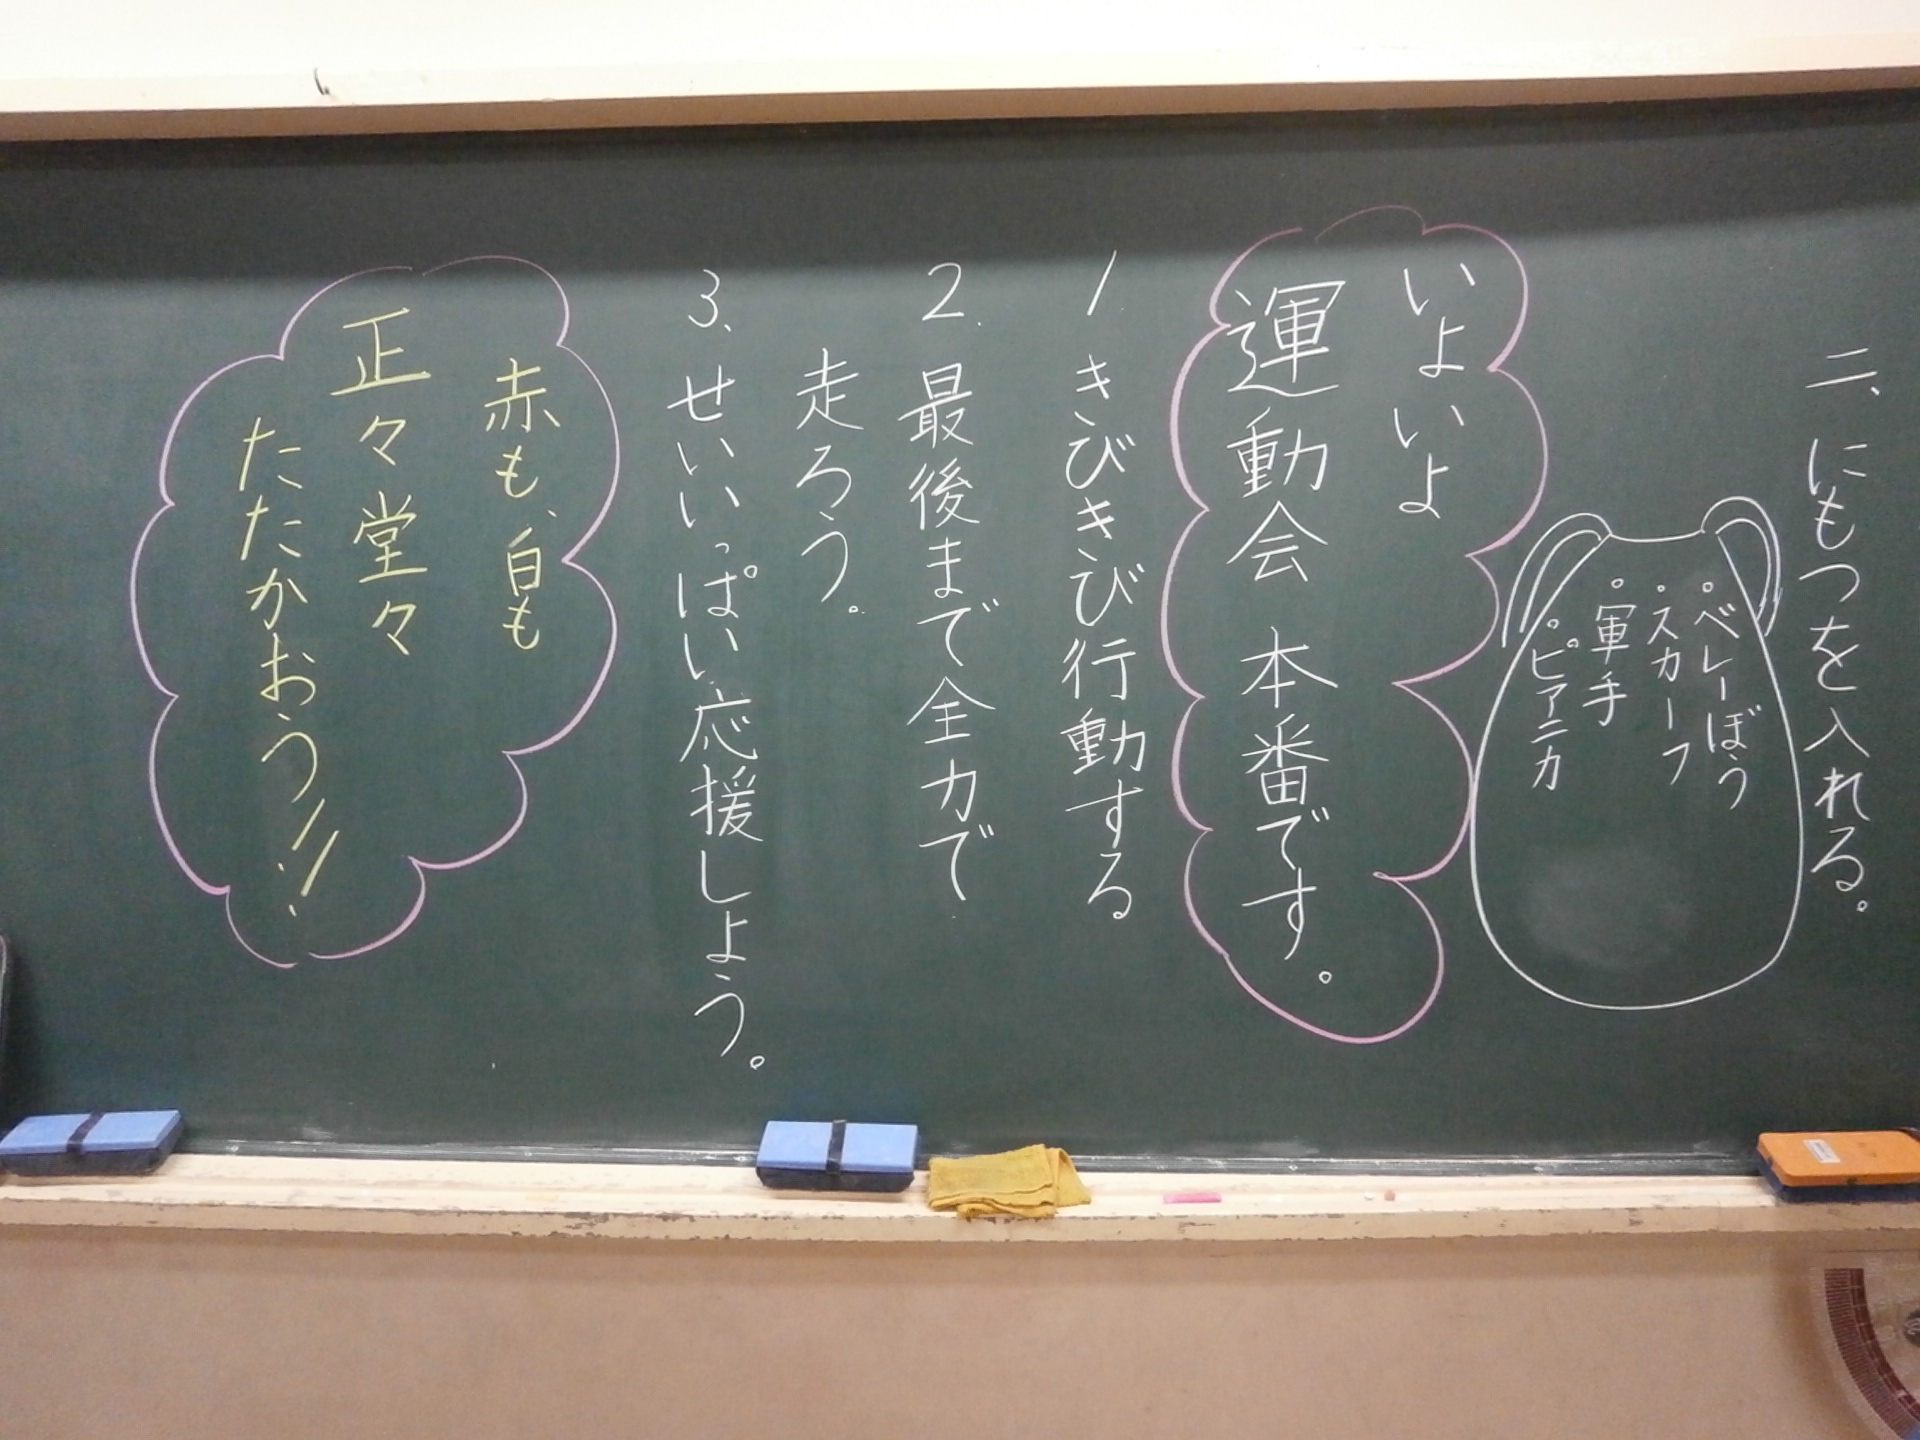 二、にもつを入れる。
・ベレーぼう
・スカーフ
・軍手
・ピアニカ
いよいよ
運動会 本番です。
1. きびきび行動する
2. 最後まで全力で
走ろう。
3、せいいっぱい応援しよう。
赤も、白も
正々堂々
たたかおう!!